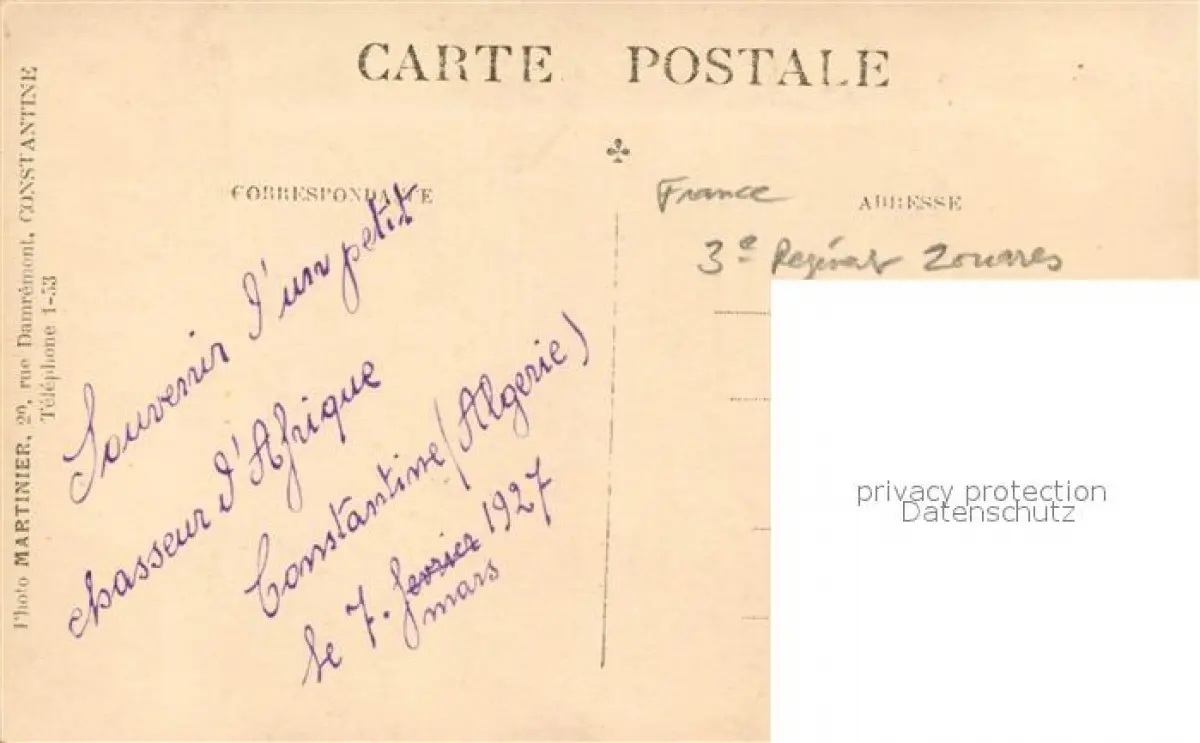 CARTE POSTALE
Photo MARTINIER, 29, rue Damrémont, CONSTANTINE
Téléphone 1-53
CORRESPONDANCE
Souvenir d'un petit
chasseur d'Afrique
Constantine (Algerie)
le 7. fevrier 1927
mars
ADRESSE
France
3e Regiment Zouaves
privacy protection
Datenschutz